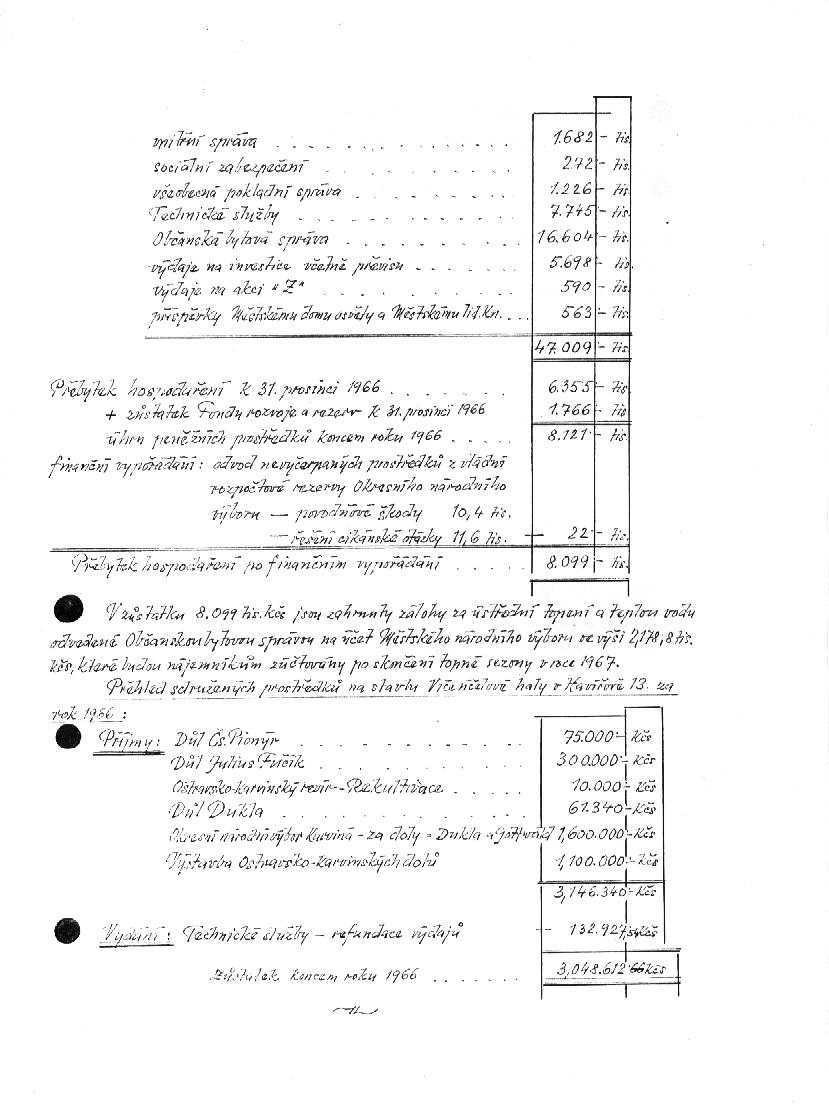 vnitřní správa . . . . . . . . . . . . . 1.682 - tis.
sociální zabezpečení . . . . . . . . . . 272 - tis.
všeobecná pokladní správa . . . . . . . . 1.226 - tis.
Technické služby . . . . . . . . . . . . 7.745 - tis.
Občanská bytová správa . . . . . . . . . 16.604 - tis.
výdaje na investice včetně převisu . . . . . . 5.698 - tis.
výdaje na akci "Z" . . . . . . . . . . . 590 - tis.
příspěvky Městskému domu osvěty a Městskému lid. kn. . . . 563 - tis.
47.009 - tis.
Přebytek hospodaření k 31. prosinci 1966 . . . . . . . 6.355 - tis.
+ zůstatek Fondu rozvoje a rezerv k 31. prosinci 1966 1.766 - tis.
úhrn peněžních prostředků koncem roku 1966 . . . . . 8.121 - tis.
finanční vypořádání: odvod nevyčerpaných prostředků z vládní
rozpočtové rezervy Okresního národního
výboru — povodňové škody 10,4 tis.
— řešení cikánské otázky 11,6 tis. — 22 - tis.
Přebytek hospodaření po finančním vypořádání . . . . . 8.099 - tis.
V zůstatku 8.099 tis. Kčs jsou zahrnuty zálohy za ústřední topení a teplou vodu
odvedené Občanskou bytovou správou na účet Městského národního výboru ve výši 2,178,8 tis.
kčs, které budou nájemníkům zúčtovány po skončení topné sezony v roce 1967.
Přehled sdružených prostředků na stavbu Víceúčelové haly v Havířově 13. za
rok 1966 :
Příjmy: Důl Čs. Pionýr . . . . . . . . . . . 75.000 - Kčs
Důl Julius Fučík . . . . . . . . . . 300.000 - Kčs
Ostravsko-karvinský revír - Rekultivace . . . . 10.000 - Kčs
Důl Dukla . . . . . . . . . . . . 61.340 - Kčs
Okresní národní výbor Karviná - za doly - Dukla a Gottwald 1,600.000 - Kčs
Výstavba Ostravsko-karvinských dolů 1,100.000 - Kčs
3,146.340 - Kčs
Vydání: Technické služby — refundace výdajů — 132.927,54 Kčs
Zůstatek koncem roku 1966 . . . . . . . 3,048.612 66 Kčs